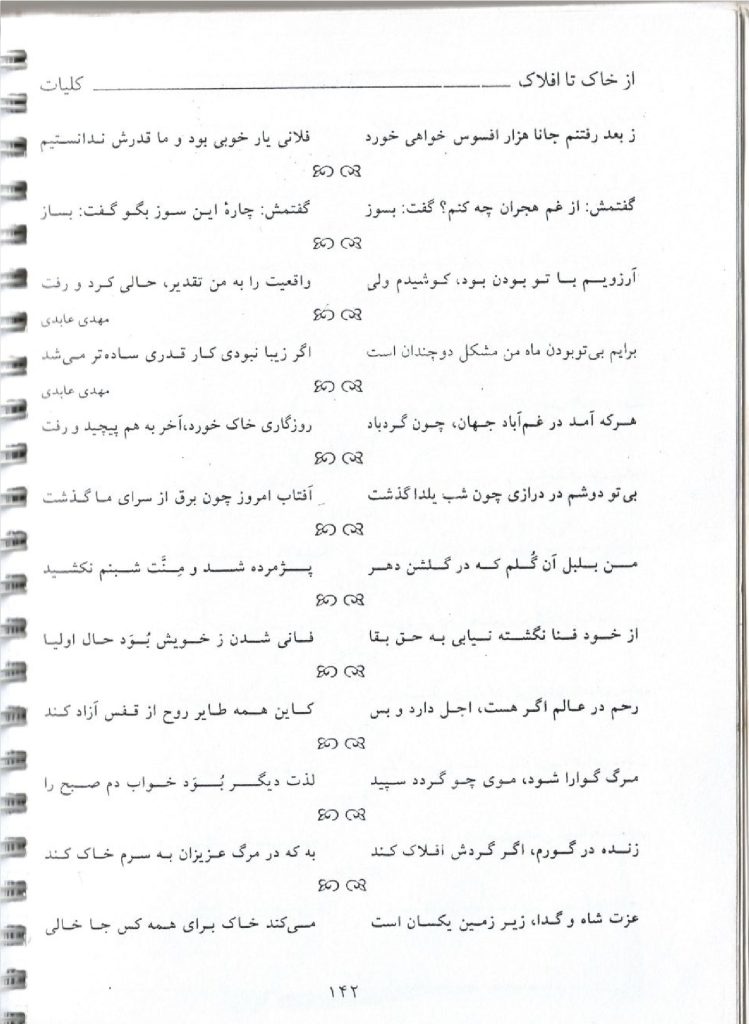 از خاک تا افلاک کلیات
ز بعد رفتنم جانا هزار افسوس خواهی خورد فلانی یار خوبی بود و ما قدرش ندانستیم
گفتمش: از غم هجران چه کنم؟ گفت: بسوز گفتمش: چارهٔ این سوز بگو گفت: بساز
آرزویم با تو بودن بود، کوشیدم ولی واقعیت را به من تقدیر، حالی کرد و رفت
مهدی عابدی
برایم بی‌توبودن ماه من مشکل دوچندان است اگر زیبا نبودی کار قدری ساده‌تر می‌شد
مهدی عابدی
هرکه آمد در غم‌آباد جهان، چون گردباد روزگاری خاک خورد،آخر به هم پیچید و رفت
بی‌تو دوشم در درازی چون شب یلدا گذشت آفتاب امروز چون برق از سرای ما گذشت
من بلبل آن گُلم که در گلشن دهر پژمرده شد و مِنَّت شبنم نکشید
از خود فنا نگشته نیابی به حق بقا فانی شدن ز خویش بُوَد حال اولیا
رحم در عالم اگر هست، اجل دارد و بس کاین همه طایر روح از قفس آزاد کند
مرگ گوارا شود، موی چو گردد سپید لذت دیگر بُوَد خواب دم صبح را
زنده در گورم، اگر گردش افلاک کند به که در مرگ عزیزان به سرم خاک کند
عزت شاه و گدا، زیر زمین یکسان است می‌کند خاک برای همه کس جا خالی
۱۴۲